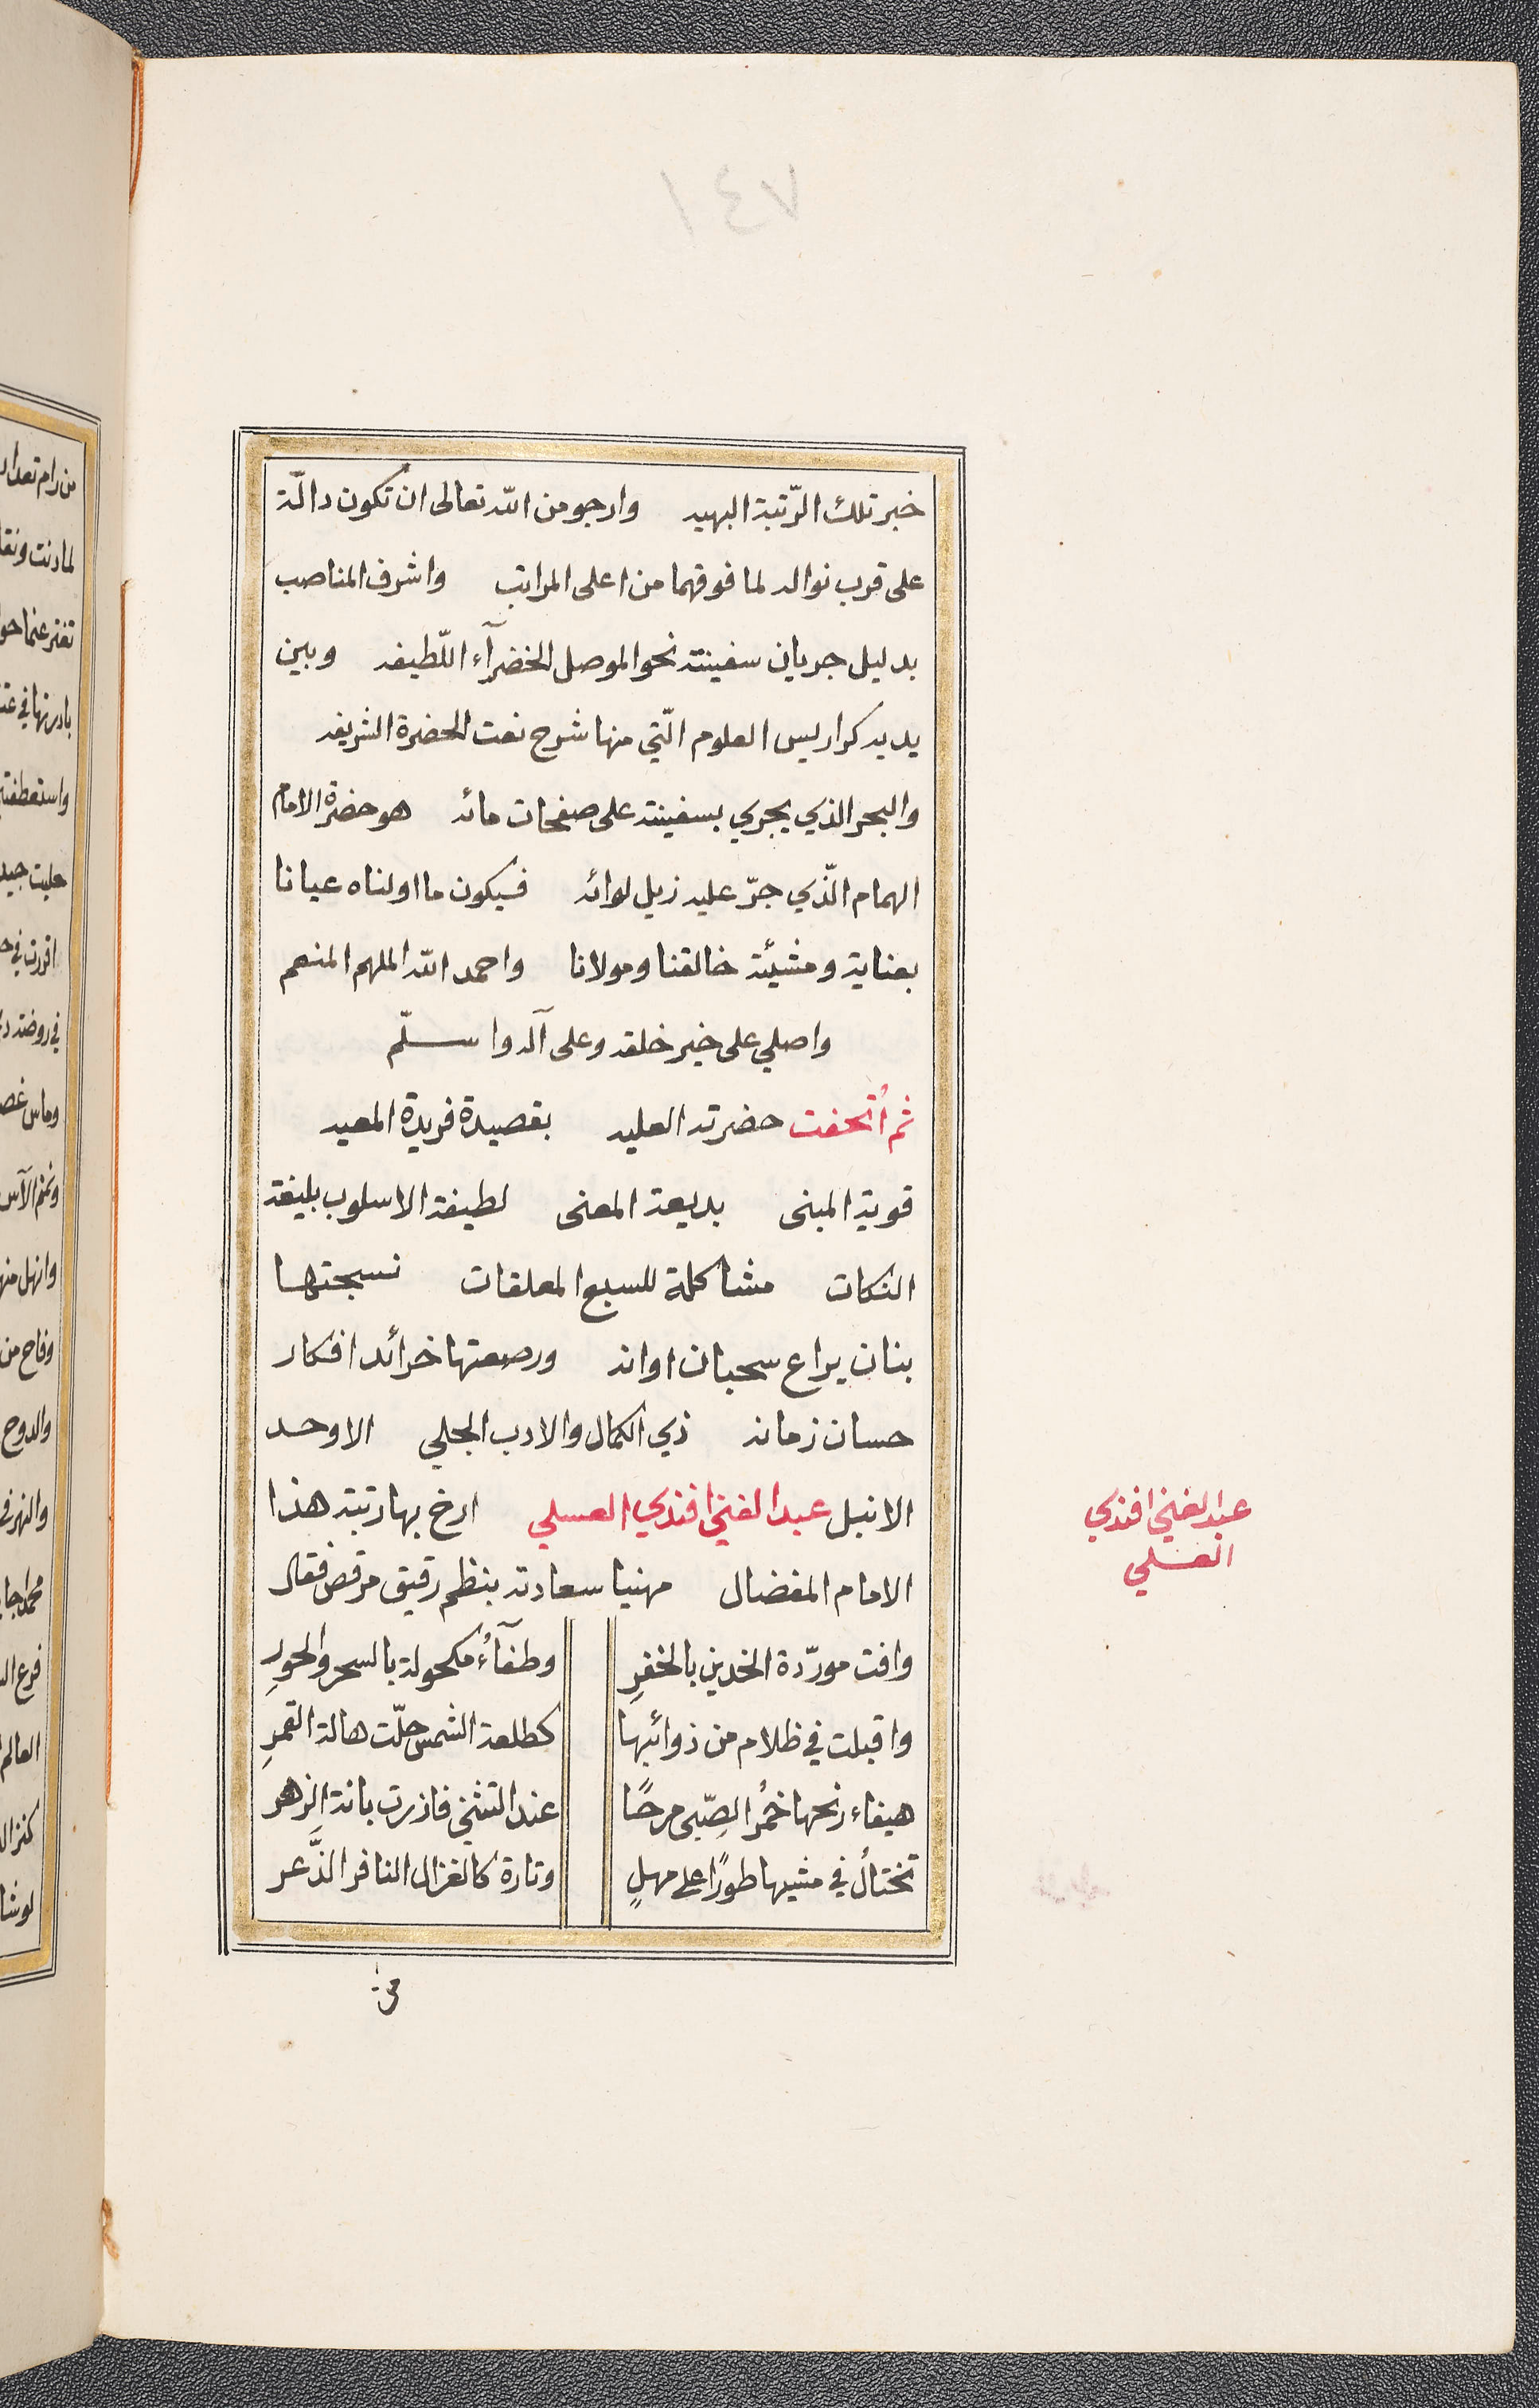 ٧٤١
خبر تلك الرّتبة البهيه وارجو من الله تعالى ان تكون دالّة
على قرب نواله لما فوقهما من اعلى المراتب واشرف المناصب
بدليل جريان سفينته نحو الموصل الخضرآء اللّطيفه وبين
يديه كراريس العلوم الّتي منها شرح نعت الحضرة الشريفه
والبحر الذي يجري بسفينته على صفحات مائه هو حضرة الامام
الهمام الّذي جرّ عليه زيل لوائه فسيكون ما اولناه عيانا
بعناية ومشيئة خالقنا ومولانا واحمد الله الملهم المنعم
واصلي على خير خلقه وعلى آله واسلّم
ثم اُتحفت حضرته العليه بقصيدة فريدة المعيه
قوية المبنى بديعة المعنى لطيفة الاسلوب بليغة
النكات مشاكلة للسبع المعلقات نسجتها
بنان يراع سحبان اوانه ورصعتها خرائد افكار
حسان زمانه ذي الكمال والادب الجلي الاوحد
الانبل عبد الغني افندي العسلي ارخ بها رتبة هذا
الامام المفضال مهنيا سعادته بنظم رقيق مرقص فقال
وافت مورّدة الخدين بالخفرِ وطفآءُ مكحولة بالسحر والحورِ
واقبلت في ظلام من ذوائبها كطلعة الشمس حلّت هالة القمرِ
هيفاء رنحها خمُر الصِّبى مرحًا عند التثني فازرت بانة الزهر
تختالُ في مشيها طورًا على مهلٍ وتارة كالغزال النافر الذَّعر
عبد الغني افندي
العسلي